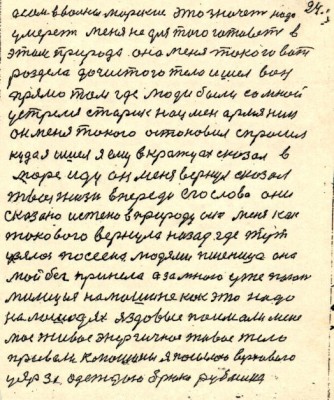 24.
а сам в волны морские это значет надо
умереть меня не для того готовит в
этом природа она меня такого вот
роздела до чистого тело и шел вон
прямо там где люди были со мной
устрелся старик на имен армянин
он меня такого остоновил спросил
куда и шел я ему вкратцах сказал в
море иду он меня вернул сказал
твоя жизнь впереди его слова они
сказано истено в природу она меня как
токового вернула назад где тут
посеена людями пшеница она
мой бег принела а за мною уже
милиция на машине как это надо
на лошадях яздовые поимали меня
мое живое энергичное живое тело
привели к я
за одеждою брюки рубашка